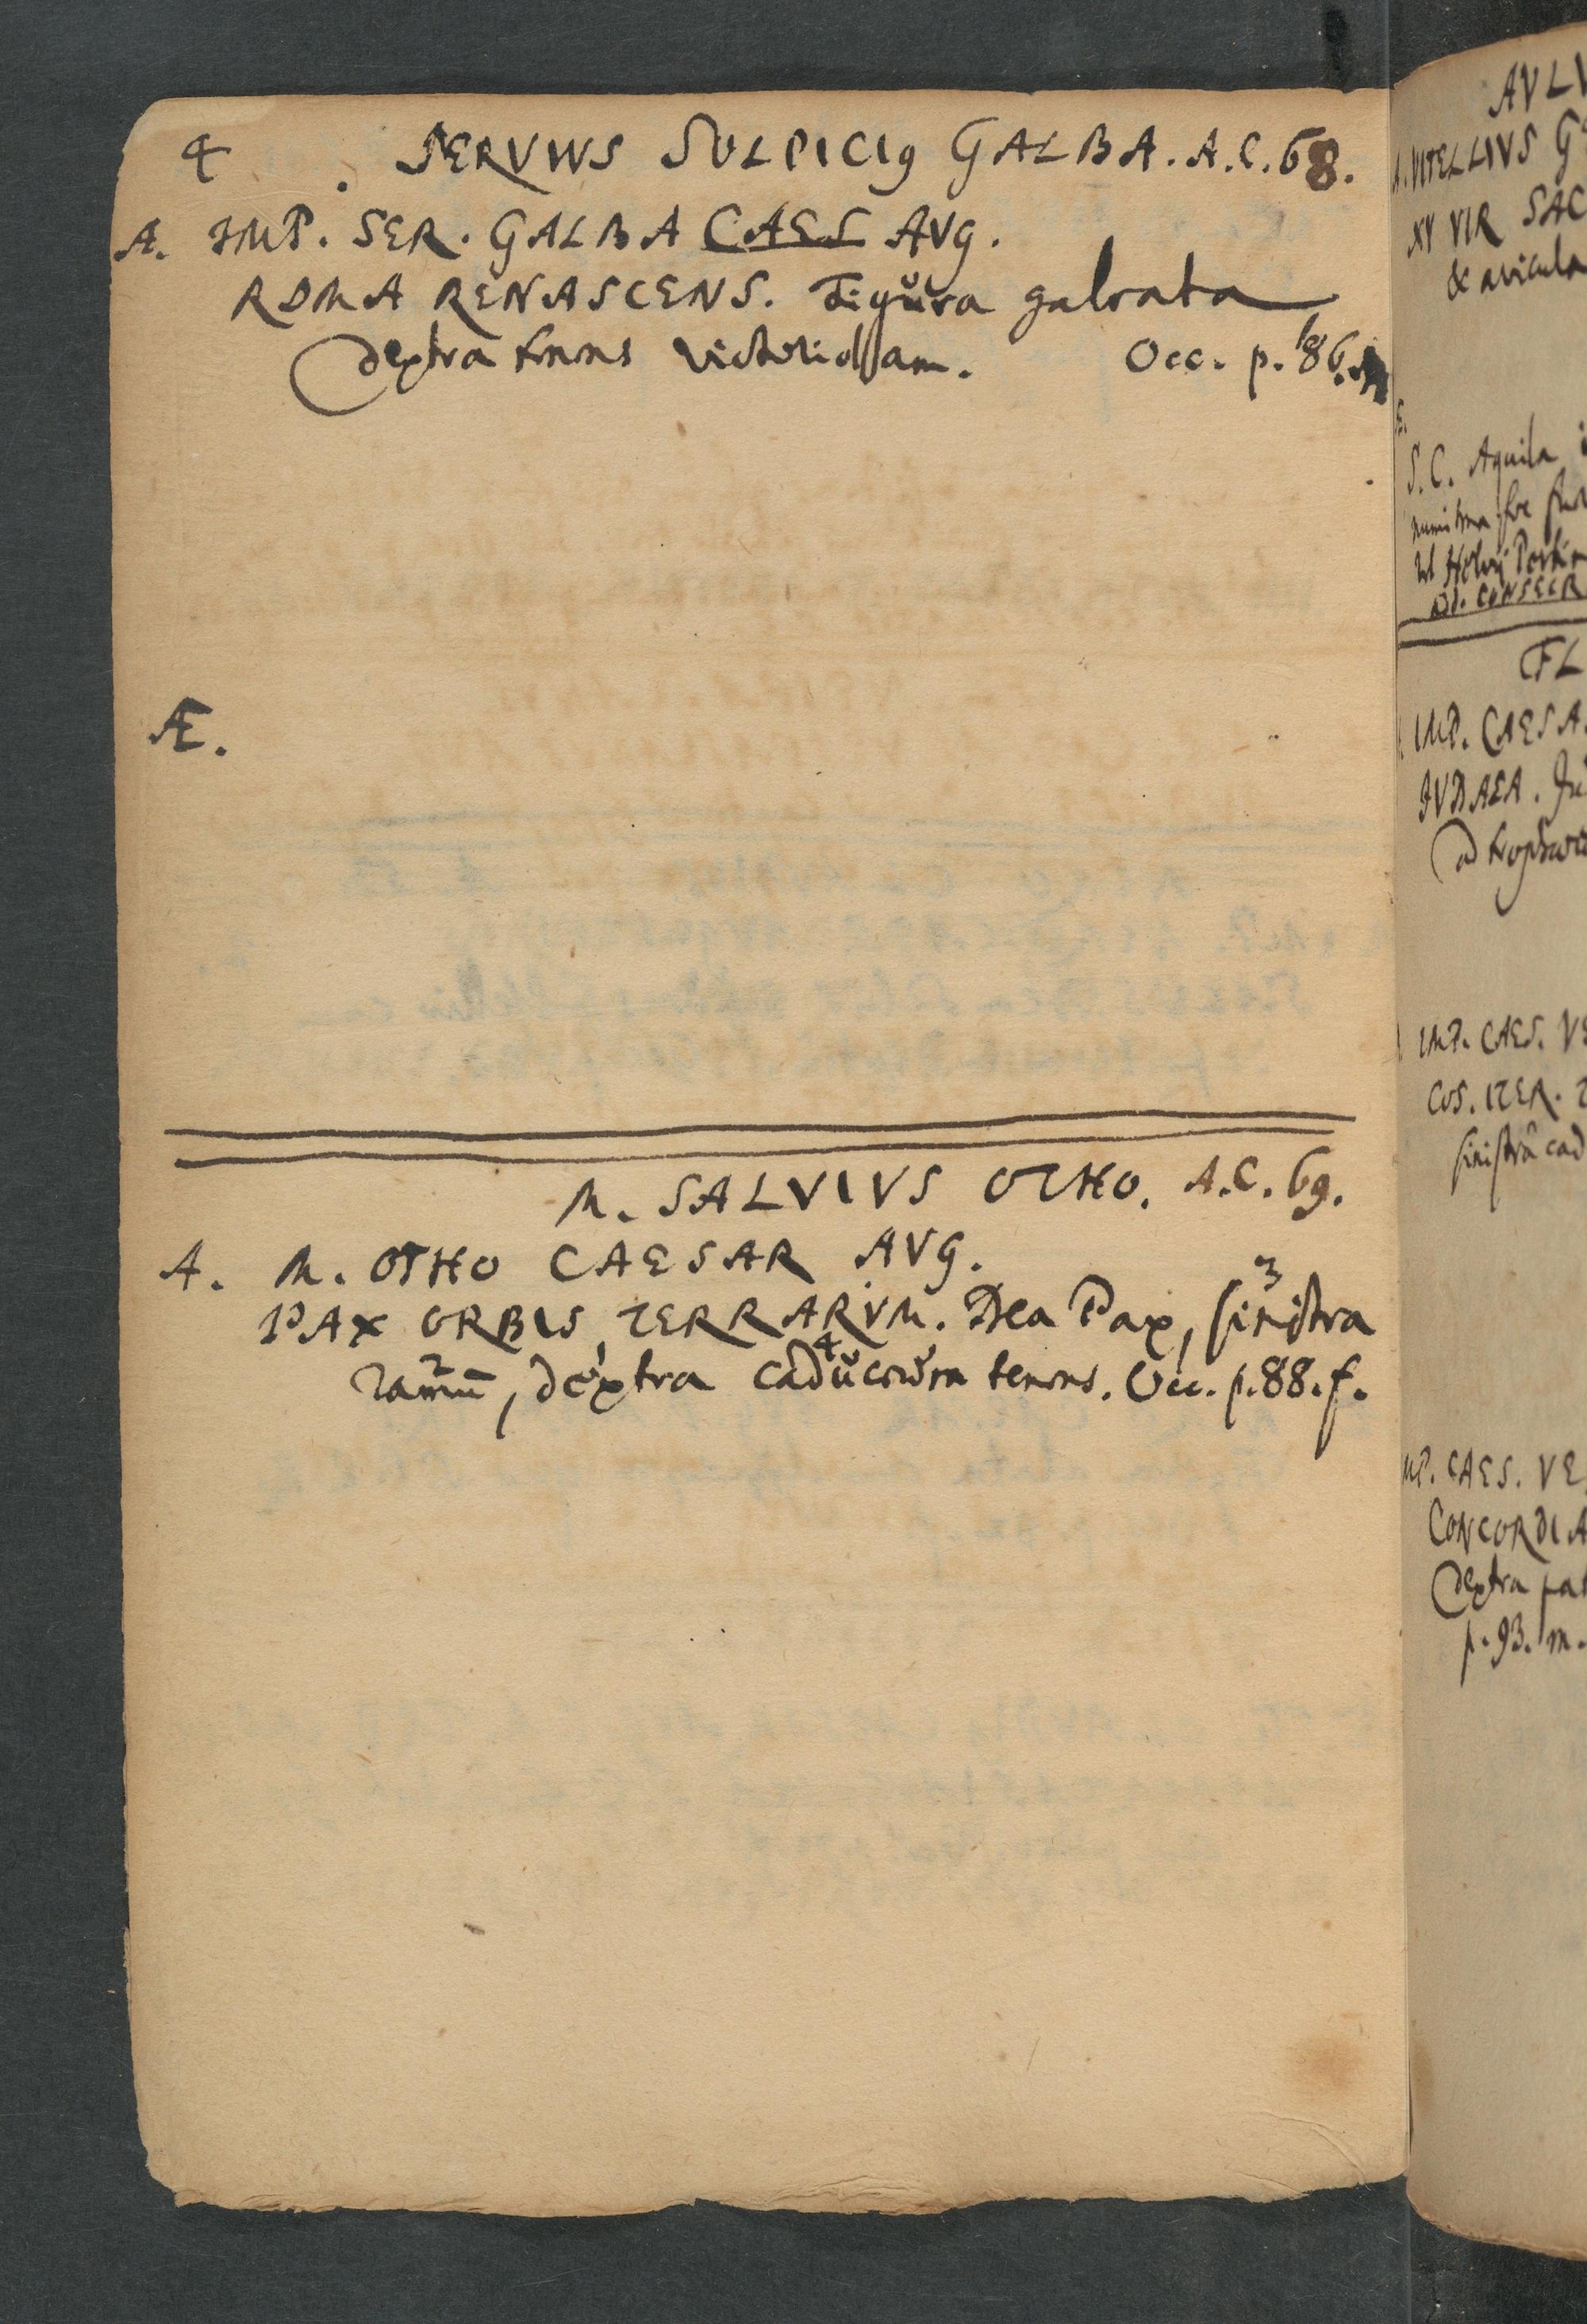 4 SERVIVS SVLPICI9 GALBA. A.C. 68.
A. IMP. SER. GALBA CAES AVG.
ROMA RENASCENS. Figura galeata
dextra tenens victoriolam. Occ. p. 86.
Æ.
M. SALVIVS OTHO. A.C. 69.
A. M. OTHO CAESAR AVG.
PAX ORBIS TERRARVM. Dea Pax, 3 sinistra
2 ramū, 1 dextra 4 caduceum tenens. Occ. p. 88. f.
AVLV
A. VITELLIVS G
XV VIR SAC
& avicula
S.C. Aquila
AD. CONSECR
FL
IMP. CAESA
IVDAEA.
IMP. CAES. VE
COS. ITER. T
sinistrâ cad
IMP. CAES. VE
CONCORDIA
dextra pat
p. 93. m.